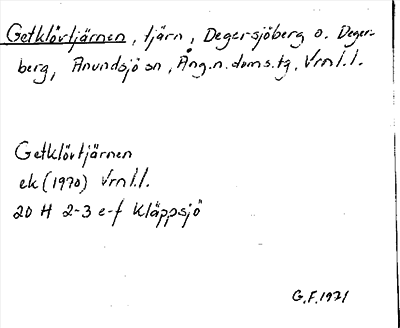 Getklövtjärnen, tjärn, Degersjöberg o. Deger-
berg, Anundsjö sn, Ång.n.doms.tg, Vrnl.l.
Getklövtjärnen
ek (1970) Vrnl.l.
20 H 2-3 e-f Kläppsjö
G.F. 1971